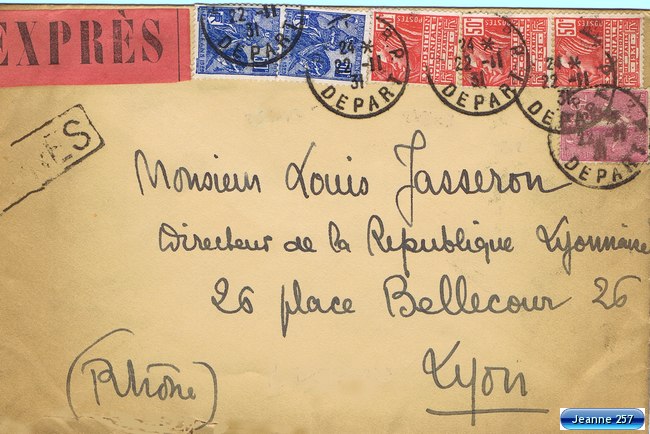 EXPRÈS
24 * 22 -11 31 DEPART
24 * 22 -11 31 DEPART
24 * 22 -11 31 DEPART
DEPART
50c
50c
50c
Monsieur Louis Jasseron
Directeur de la Republique Lyonnaise
26 place Bellecour 26
Lyon
(Rhône)
Jeanne 257